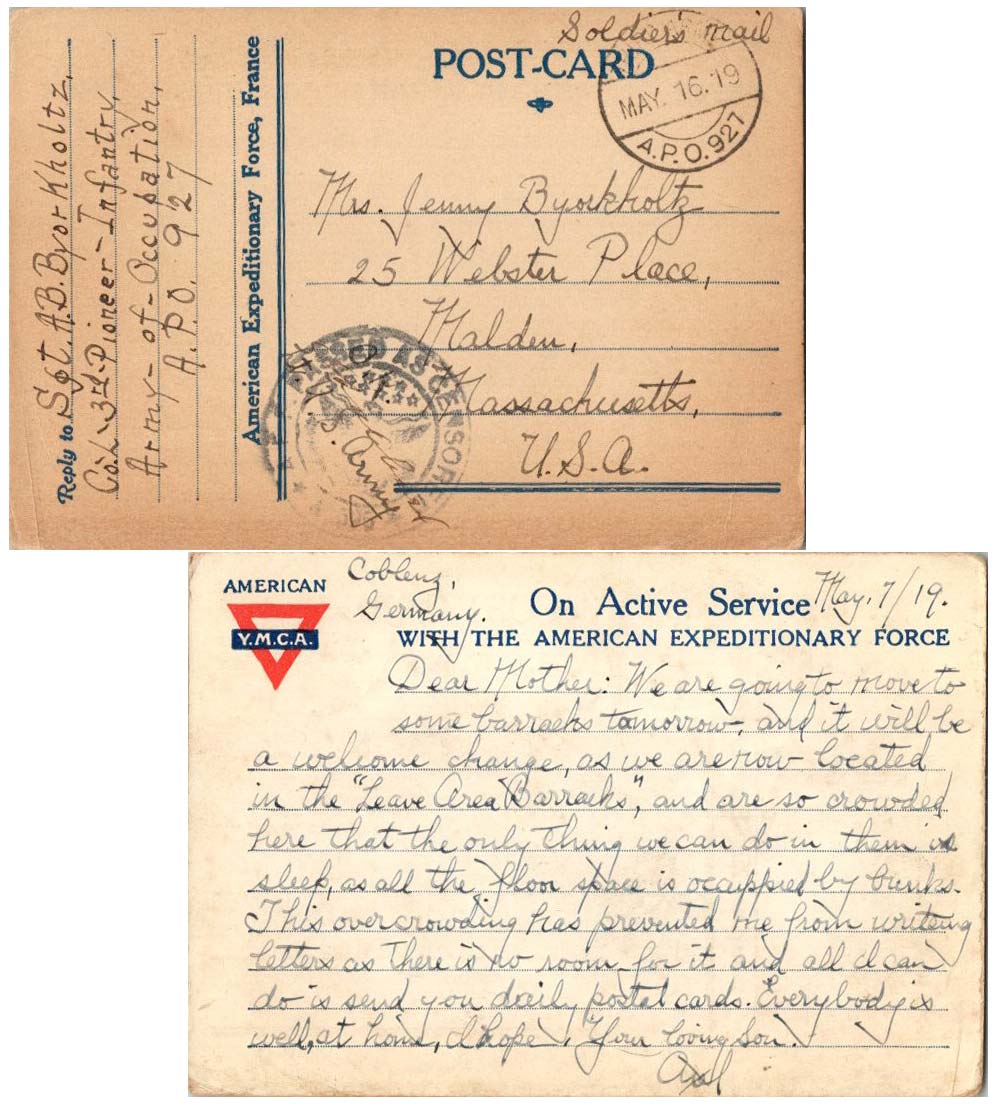 Soldier's mail
POST-CARD
MAY. 16. 19
A.P.O. 927
Reply to Sgt. A.B. Byorkholtz,
Co. L. 3rd. Pioneer-Infantry,
Army-of-Occupation,
A.P.O. 927
American Expeditionary Force, France
Mrs. Jenny Byorkholtz
25 Webster Place,
Malden,
Massachusetts,
U.S.A.
PASSED AS CENSORED
U.S. Army
AMERICAN
Y.M.C.A.
Coblenz,
Germany.
On Active Service
May. 7/19.
WITH THE AMERICAN EXPEDITIONARY FORCE
Dear Mother: We are going to move to
some barracks tomorrow, and it will be
a welcome change, as we are now located
in the "Leave Area Barracks", and are so crowded
here that the only thing we can do in them is
sleep, as all the floor space is ocuppied by bunks.
This overcrowding has prevented me from writeing
letters as there is no room for it and all I can
do is send you daily postal cards. Everybody is
well, at home, I hope. Your loving son.
Axel